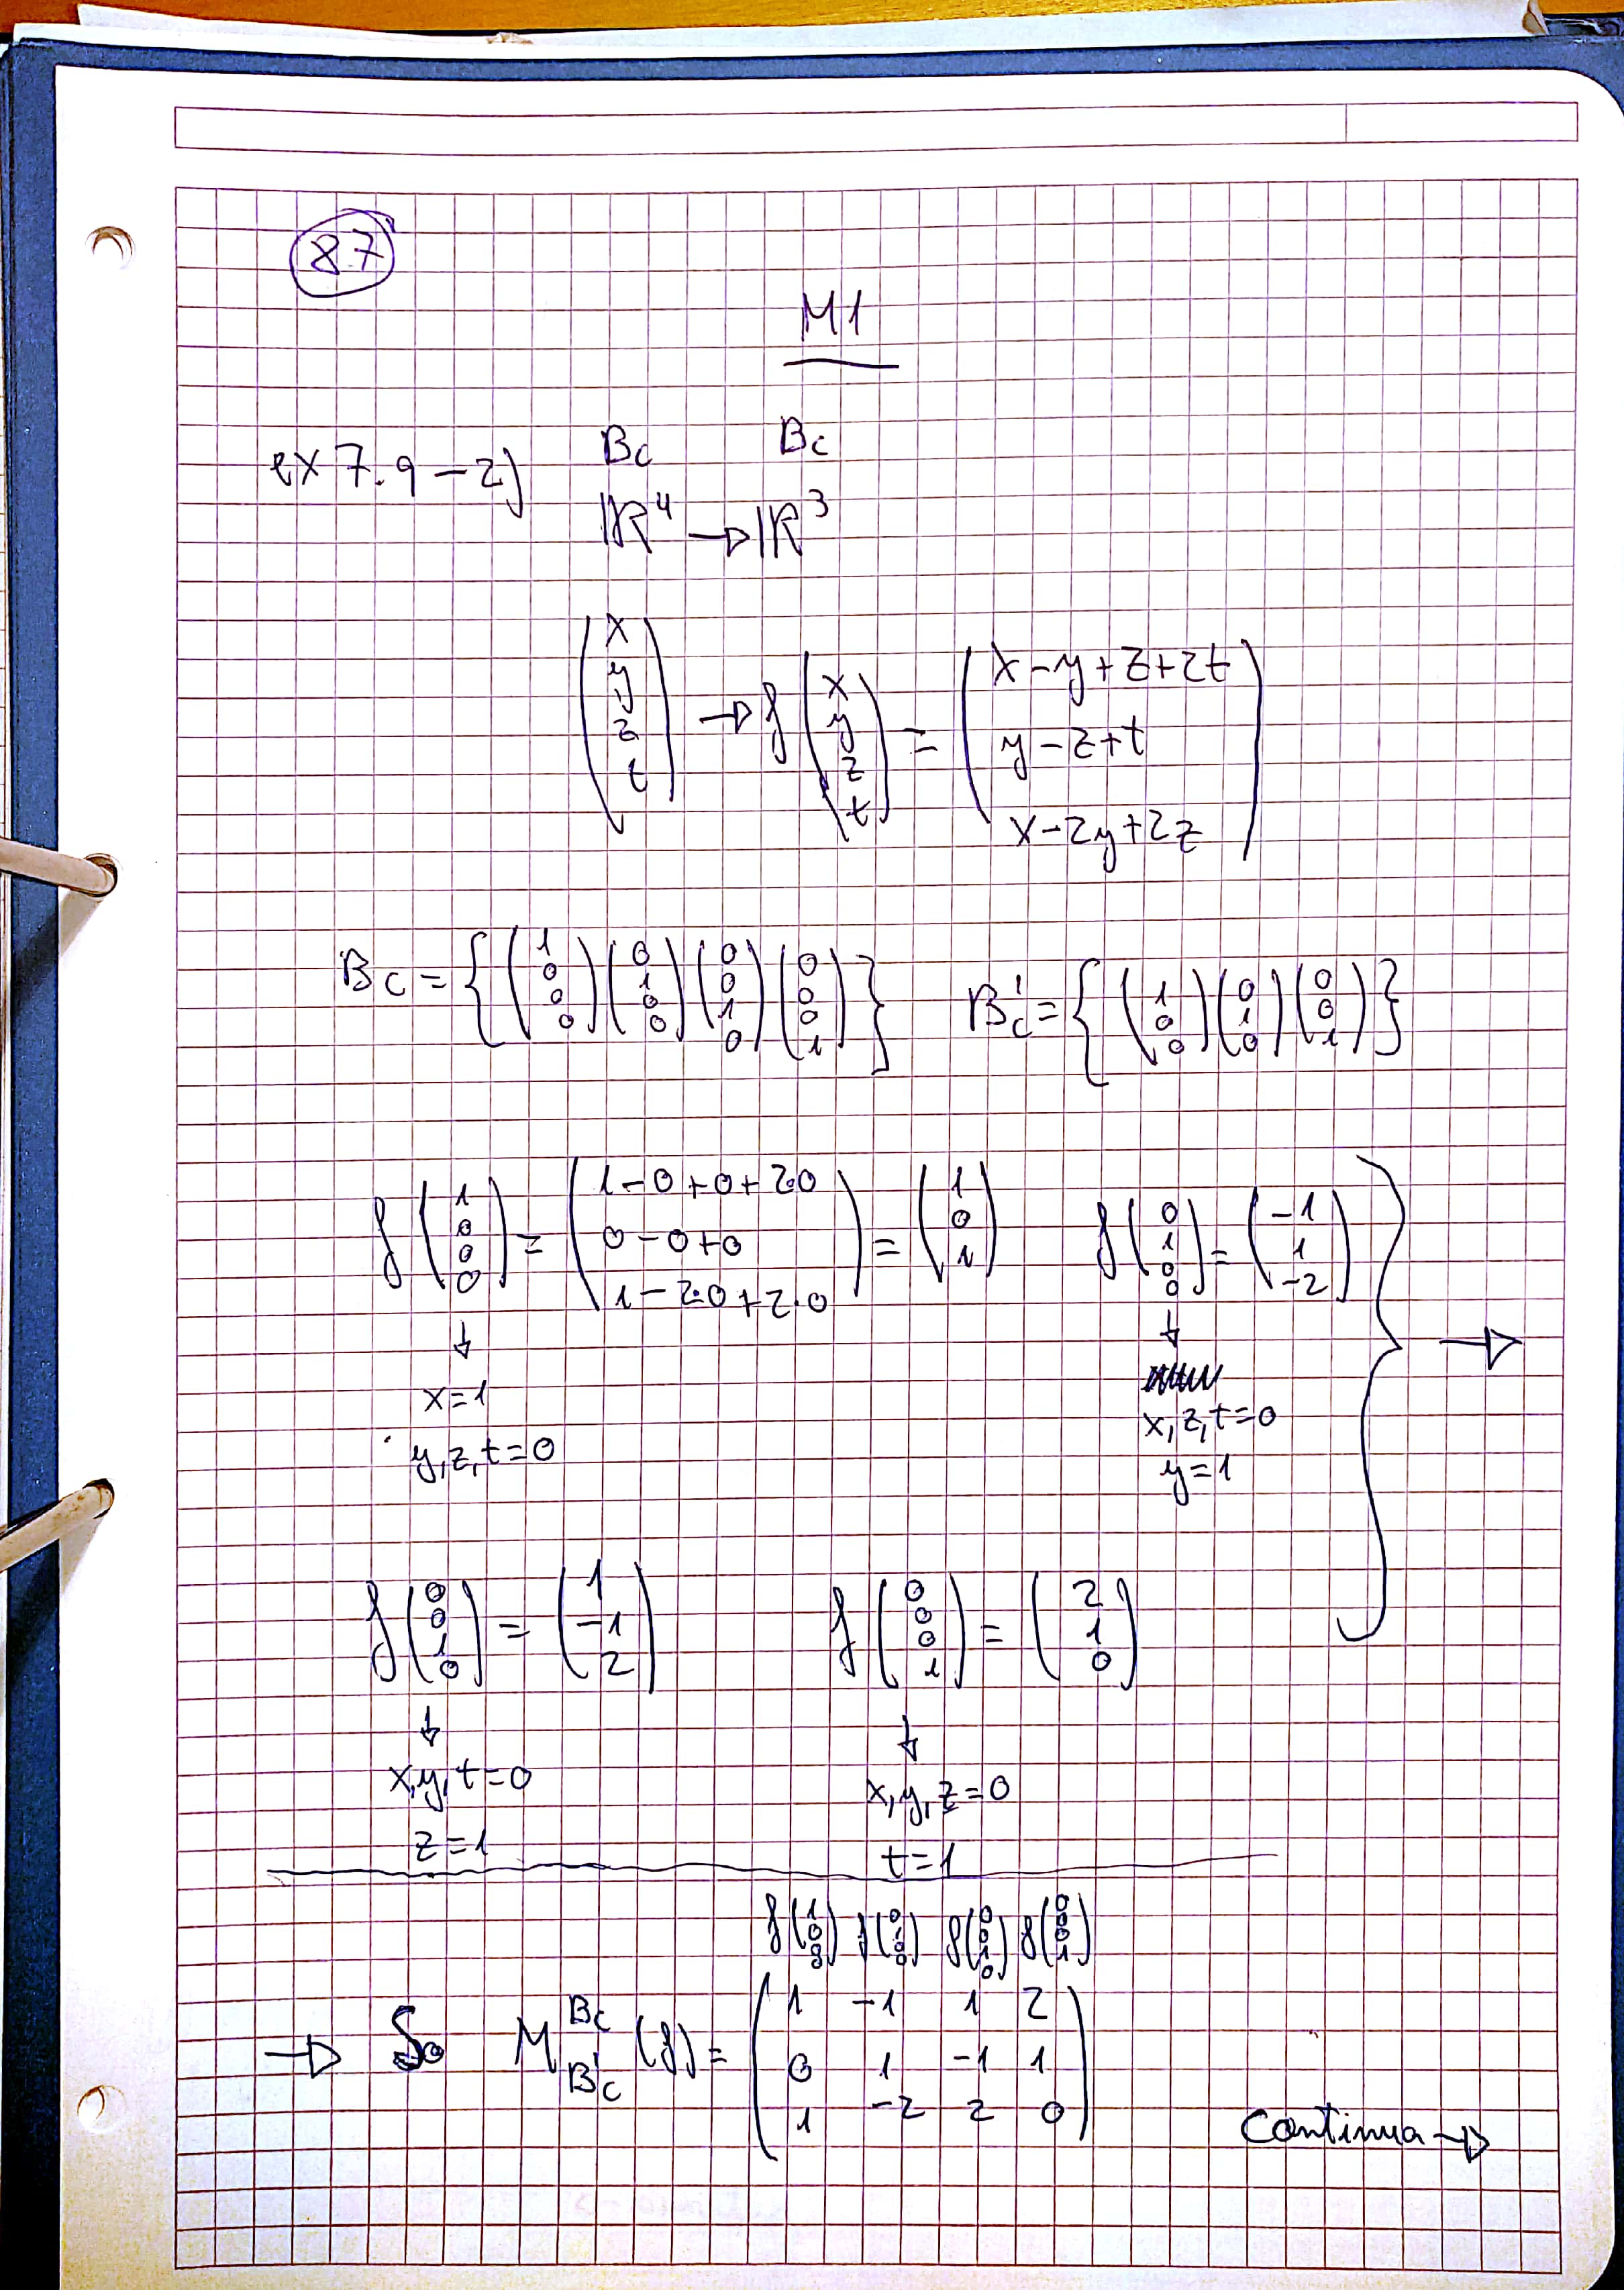 87
M1
ex 7.9 - 2) Bc Bc
ℝ⁴ → ℝ³
(x y z t) → f(x y z t) = (x-y+z+2t
y-z+t
x-2y+2z)
Bc = {(1 0 0 0)(0 1 0 0)(0 0 1 0)(0 0 0 1)} B'c = {(1 0 0)(0 1 0)(0 0 1)}
f(1 0 0 0) = (1-0+0+2·0
0-0+0
1-2·0+2·0) = (1 0 1) f(0 1 0 0) = (-1 1 -2) } →
↓ ↓
x=1 x,z,t=0
y,z,t=0 y=1
f(0 0 1 0) = (1 -1 2) f(0 0 0 1) = (2 1 0)
↓ ↓
x,y,t=0 x,y,z=0
z=1 t=1
f(1 0 0) f(0 1 0 0) f(0 0 1 0) f(0 0 0 1)
→ So M Bc B'c (f) = (1 -1 1 2
0 1 -1 1
1 -2 2 0)
Continua →